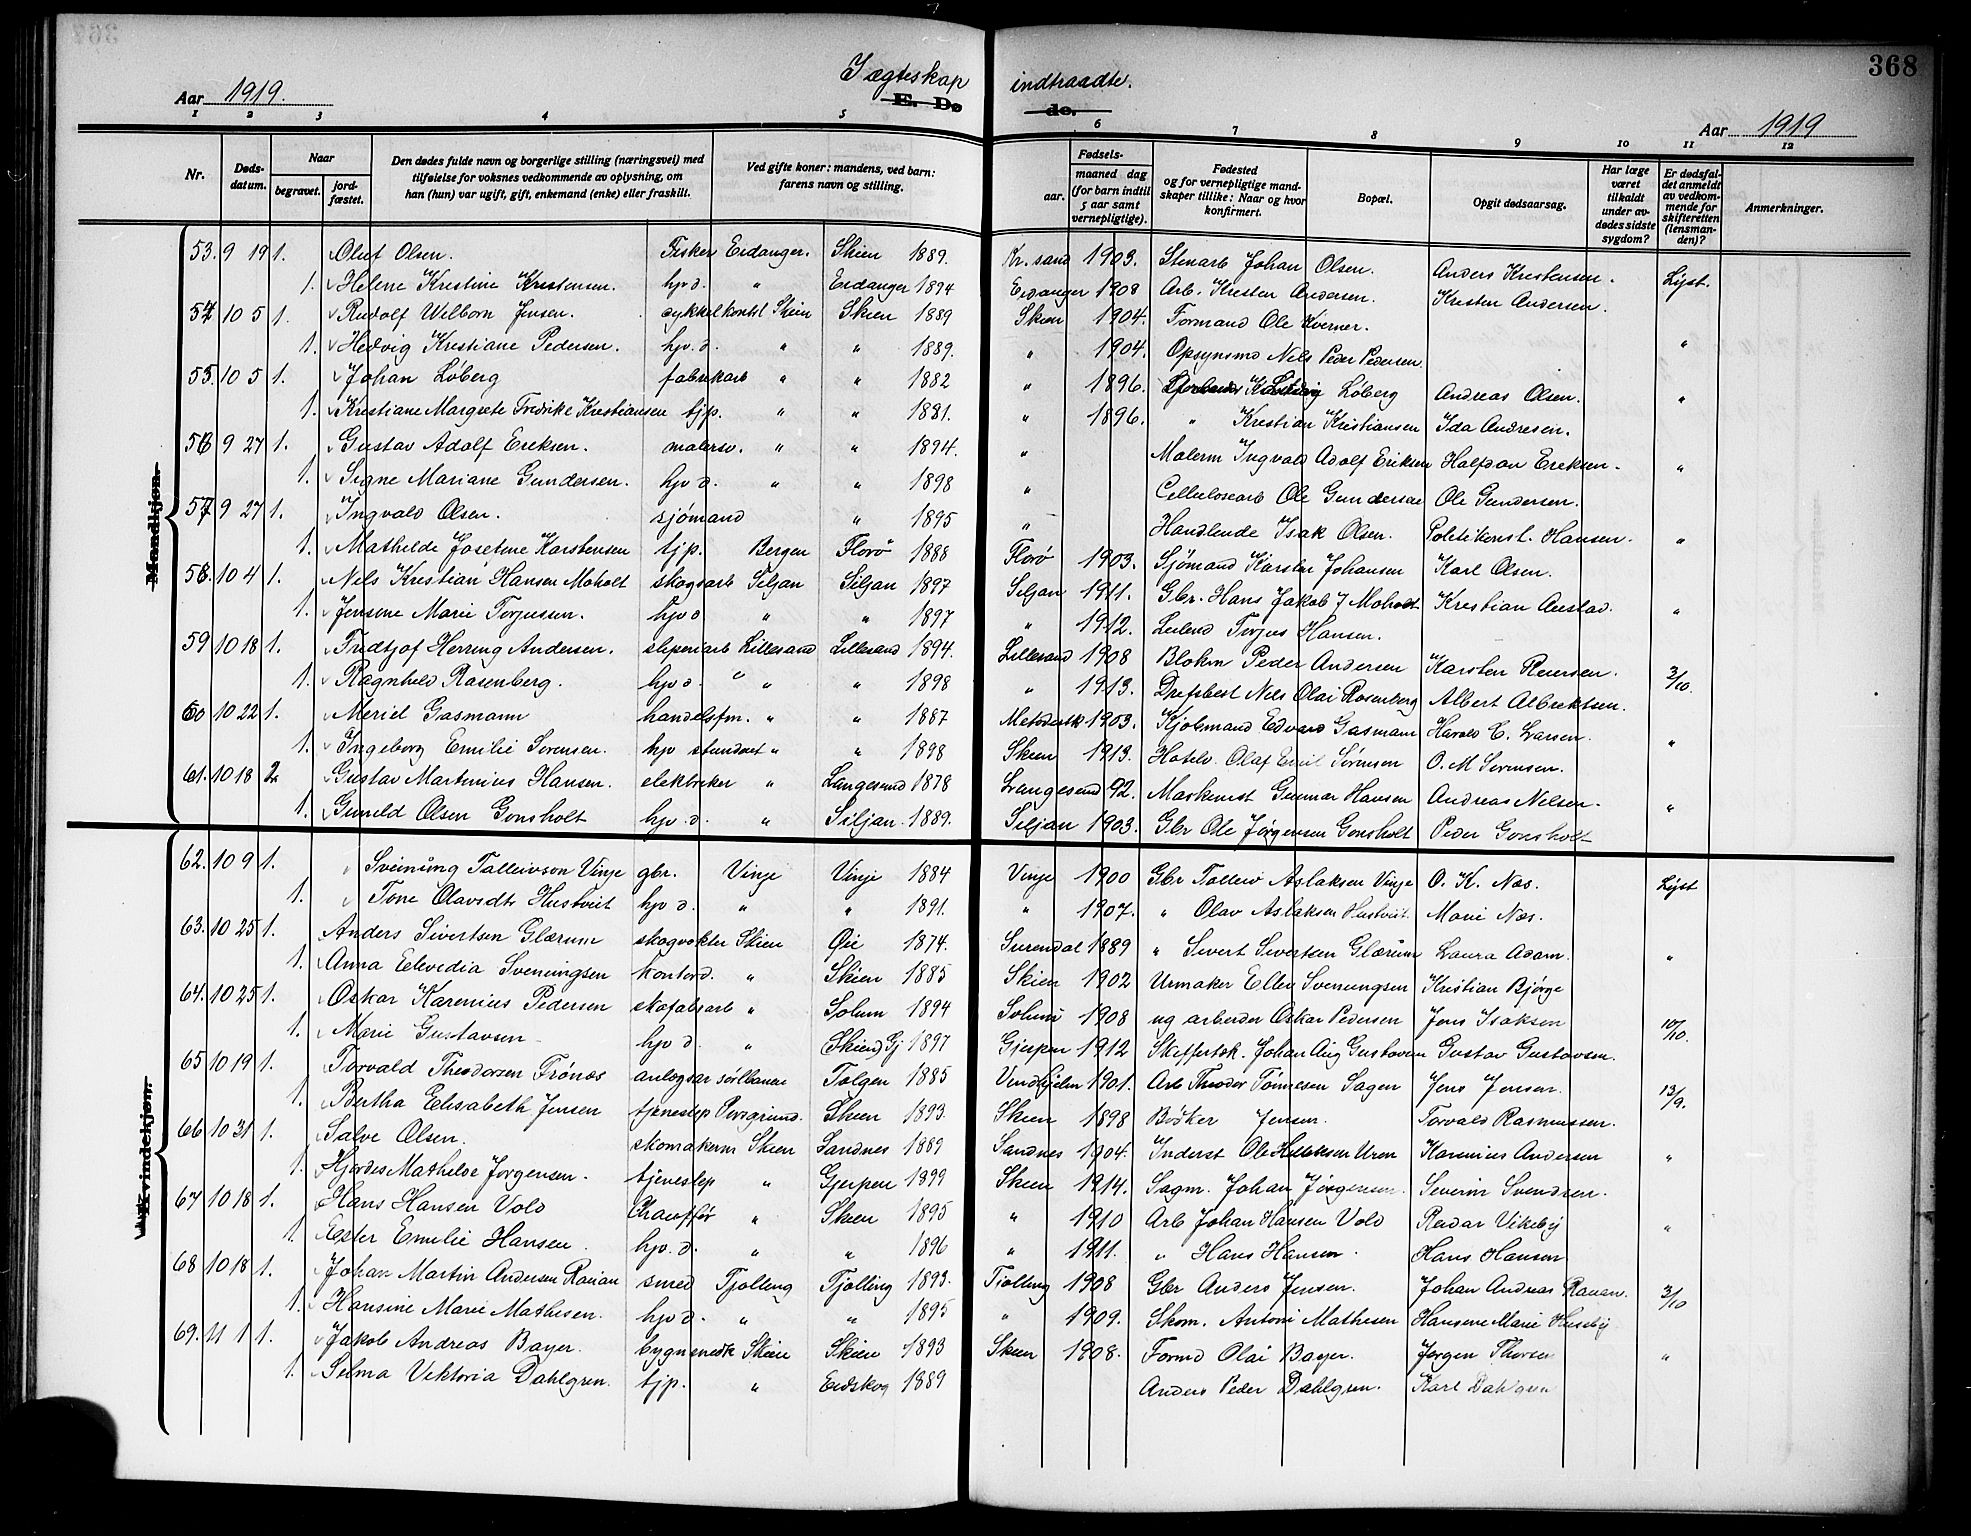 368
Ægteskap indtraadte.
E. Dø de.
Aar 1919.
Aar 1919
1 2 3 4 5 6 7 8 9 10 11 12
Nr. Døds-datum. Naar begravet. jord-fæstet. Den dødes fulde navn og borgerlige stilling (næringsvei) med tilføielse for voksnes vedkommende av oplysning, om han (hun) var ugift, gift, enkemand (enke) eller fraskilt. Ved gifte koner: mandens, ved barn: farens navn og stilling. Fødsels- aar. maaned dag (for barn indtil 5 aar samt vernepligtige). Fødested og for vernepligtige mandskaper tillike: Naar og hvor konfirmert. Bopæl. Opgit dødsaarsag. Har læge været tilkaldt under avdødes sidste sygdom? Er dødsfaldet anmeldt av vedkommende for skifteretten (lensmanden)? Anmerkninger.
Mandkjøn.
53. 9 19 1. Oluf Olsen. Fisker Eidanger. Skien 1889. Kr. sand 1903. Stenarb Johan Olsen. Anders Kristensen. Lyst.
1. Helene Kristine Kristensen. hjv d. " Eidanger 1894 Eidanger 1908 Arb. Kristen Andersen. Kristen Andersen.
54 10 5 1. Rudolf Welborn Jensen. cykkelkontl Skien Skien 1889 Skien 1904. Formand Ole Kverner. "
1. Hedvig Kristiane Pedersen. hjv. d. " " 1889. " 1904. Opsynsmd Nils Peder Pedersen
55. 10 5 1. Johan Løberg fabrikarb " " 1882 " 1896. Ludvig Løberg Andreas Olsen. "
1. Kristiane Margrete Fredrike Kristiansen tjp. " " 1881. " 1896. " Kristian Kristiansen Ida Andresen.
56 9 27 1. Gustav Adolf Eriksen. malersv. " " 1894. " Malerm Ingvald Adolf Eriksen Halfdan Eriksen. "
1. Signe Mariane Gundersen. hjv d. " " 1898 " Cellulosearb Ole Gundersen Ole Gundersen.
57 9 27 1. Ingvald Olsen. sjømand " 1895 " Handlende Isak Olsen. Politikonst. Hansen. "
1. Mathilde Josefine Karstensen tjp. Bergen Florø 1888 Florø 1903. Sjømand Karsten Johansen Karl Olsen.
58. 10 4 1. Nils Kristian Hansen Moholt skogsarb Siljan Siljan 1897 Siljan 1911. Gbr. Hans Jakob J Moholt Kristian Austad. "
1. Jensine Marie Torjusen. hjv d " " 1897 " 1912. Leilend Torjus Hansen.
59 10 18 1. Fridtjof Herring Andersen. sliperiarb Lillesand Lillesand 1894. Lillesand 1908 Blokm Peder Andersen Karsten Reiersen. 2/10.
1. Ragnhild Rosenberg. hjv d. " " 1898 " 1913. Drifsbest Nils Olai Rosenberg Albert Albrektsen.
60 10 22 1. Meriel Gasmann handelsfm. " " 1887 Metodistk 1903. Kjøbmand Edvard Gasmann Harald C. Larsen. "
1. Ingeborg Emilie Sørensen. hjv " " 1898 Skien 1913. Hotelv. Olaf Emil Sørensen O. M Sørensen.
61. 10 18 2 Gustav Martinius Hansen. elektriker " Langesund 1878 Langesund 92. Maskinist Gunnar Hansen Andreas Nilsen. "
1. Gunild Olsen Gonsholt hjv. d. " Siljan. 1889. Siljan 1903. Gbr Ole Jørgensen Gonsholt Peder Gonsholt
Kvindekjøn.
62. 10 9 1. Sveinung Talleivson Vinje gbr. Vinje Vinje 1884 Vinje 1900 Gbr Talleiv Aslaksen Vinje O. K. Næs. Lyst
1. Tone Olavsdtr Hustveit hjv d. " " 1891. " 1907. " Olav Aslaksen Hustveit. Marie Næs.
63. 10 25 1. Anders Sivertsen Glærum skogvokter Skien Øie 1874. Surendal 1889 " Sivert Sivertsen Glærum Laura Adam. "
1. Anna Elevedia Sveningsen kontord. " Skien 1885 Skien 1902 Urmaker Ellev Svenungsen Kristian Bjørge
64. 10 25 1. Oskar Karenius Pedersen skofabarb " Solum 1894 Solum 1908 ug arbeider Oskar Pedersen Jens Isaksen 10/10.
1. Marie Gustavsen hjv d. " Skien) Gj 1897 Gjerpen 1912 Skiffertæk. Johan Aug Gustavsen Gustav Gustavsen.
65 10 19 1. Torvald Theodorsen Frønæs anlægsar sørlbanen Tolgen 1885 1901. Arb Theodor Tønnesen Sagen Jens Jensen. 13/9.
1. Bertha Elisabeth Jensen tjenestep Porsgrund. Skien 1893. Skien 1898 Bødker Jensen. Torvald Rasmussen.
66 10 31 1. Salve Olsen. skomakerm Skien Sandnes 1889 Sandnes 1904. Inderst Ole Uren Karenius Andersen "
1. Hjørdis Mathilde Jørgensen. tjenestep " Gjerpen 1899 Skien 1914. Sagm. Johan Jørgensen. Severin Svendsen.
67 10 18 1. Hans Hansen Vold Chauffør " Skien 1895 " 1910 Arb Johan Hansen Vold Reidar Vikeby "
1. Ester Emilie Hansen. hjv. d. " " 1896 " 1911. " Hans Hansen. Hans Hansen
68 10 18 1. Johan Martin Andersen Rauan smed Tjølling Tjølling 1893. Tjølling 1908 Gbr Anders Jensen. Johan Andreas Rauan. 3/10
1. Hansine Marie Mathisen. hjv d. " " 1895 " 1909. Skom. Antoni Mathisen Hansine Marie Huseby
69. 11 1 1. Jakob Andreas Bayer. bygnsnedk Skien Skien 1893 Skien 1908. Formd Olai Bayer. Jørgen Thorsen "
1. Selma Viktoria Dahlgren. tjp. " Eidskog 1889 Anders Peder Dahlgren. Karl Dahlgren